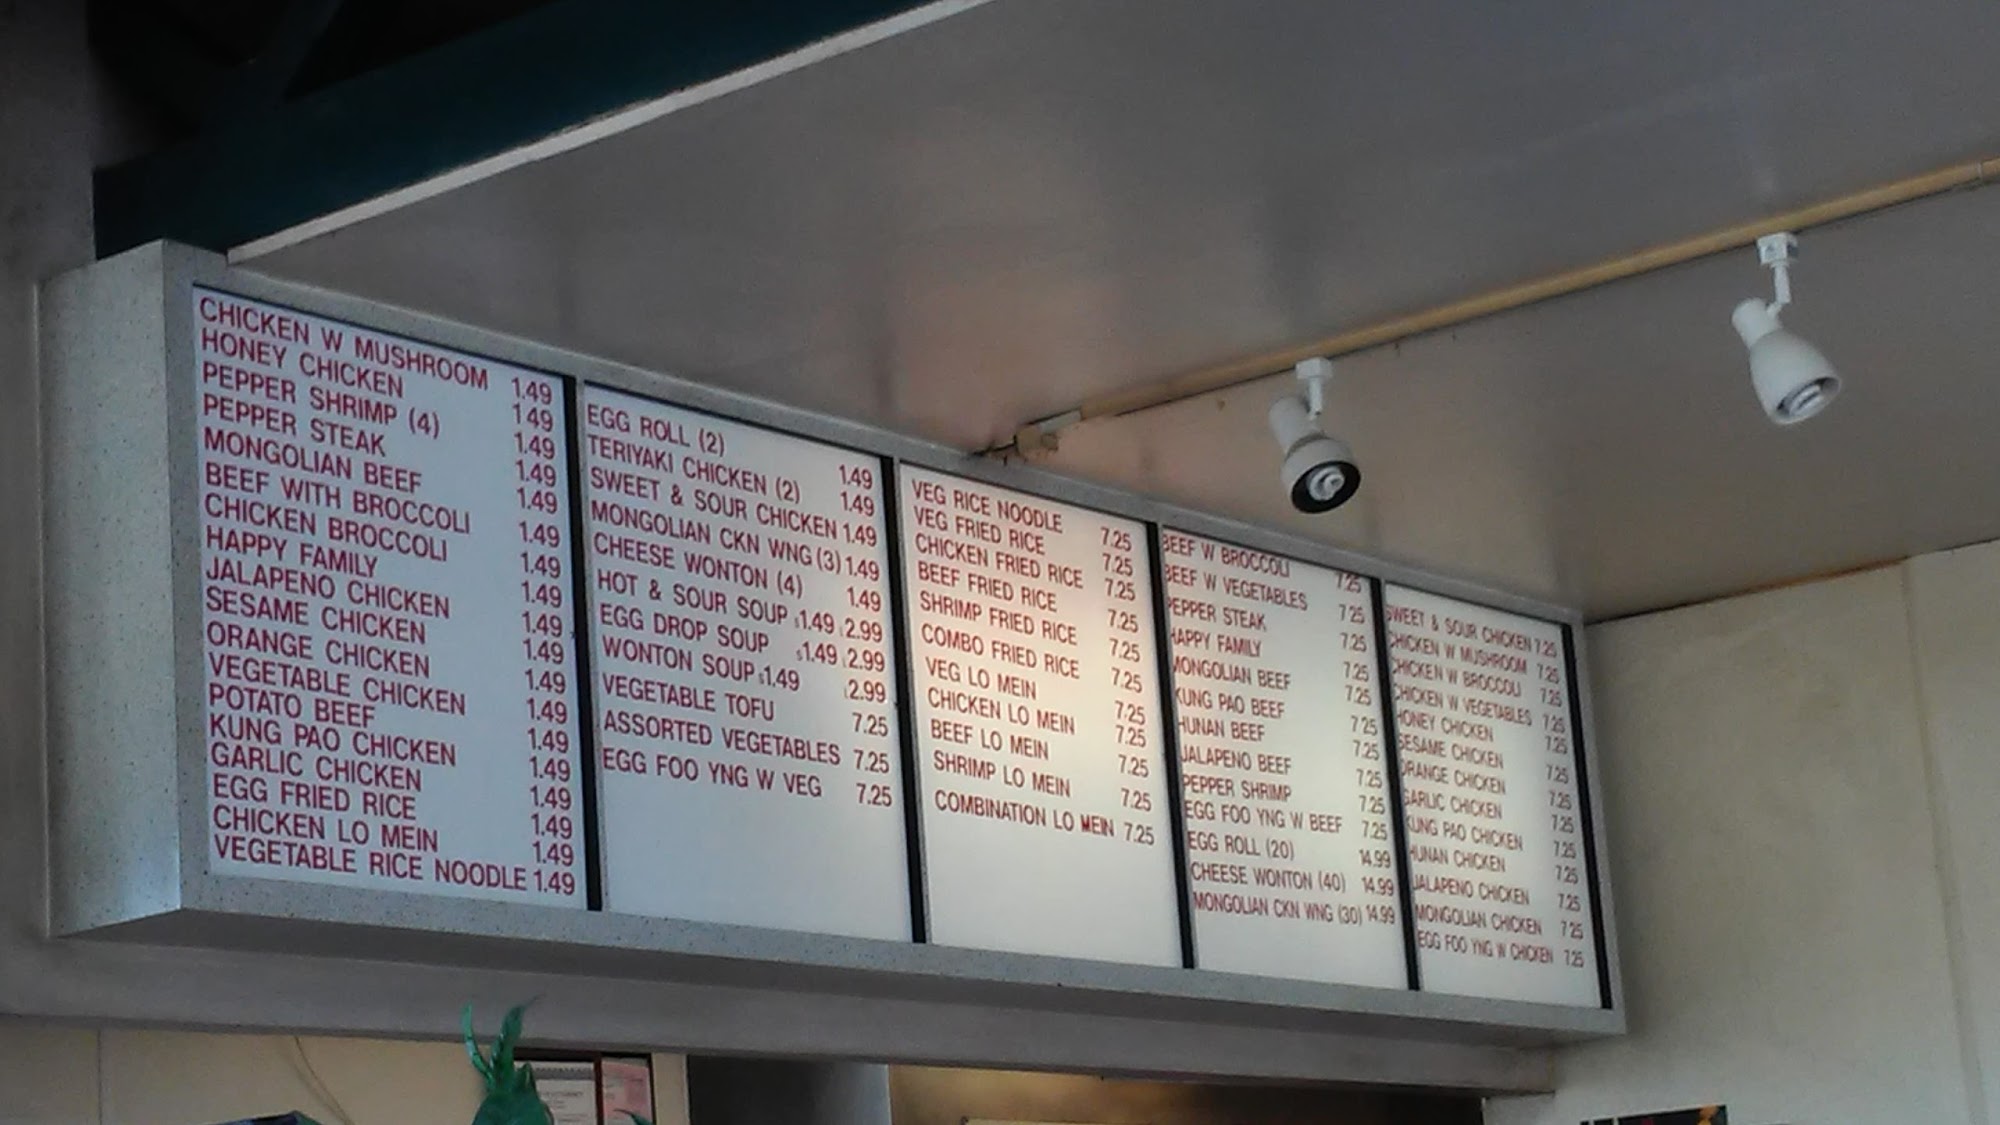 CHICKEN W MUSHROOM 1.49
HONEY CHICKEN 1 49
PEPPER SHRIMP (4) 1.49
PEPPER STEAK 1.49
MONGOLIAN BEEF 1.49
BEEF WITH BROCCOLI 1.49
CHICKEN BROCCOLI 1.49
HAPPY FAMILY 1.49
JALAPENO CHICKEN 1.49
SESAME CHICKEN 1.49
ORANGE CHICKEN 1.49
VEGETABLE CHICKEN 1.49
POTATO BEEF 1.49
KUNG PAO CHICKEN 1.49
GARLIC CHICKEN 1.49
EGG FRIED RICE 1.49
CHICKEN LO MEIN 1.49
VEGETABLE RICE NOODLE 1.49
EGG ROLL (2) 1.49
TERIYAKI CHICKEN (2) 1.49
SWEET & SOUR CHICKEN 1.49
MONGOLIAN CKN WNG (3) 1.49
CHEESE WONTON (4) 1.49
HOT & SOUR SOUP S1.49 L2.99
EGG DROP SOUP S1.49 L2.99
WONTON SOUP S1.49 L2.99
VEGETABLE TOFU 7.25
ASSORTED VEGETABLES 7.25
EGG FOO YNG W VEG 7.25
VEG RICE NOODLE 7.25
VEG FRIED RICE 7.25
CHICKEN FRIED RICE 7.25
BEEF FRIED RICE 7.25
SHRIMP FRIED RICE 7.25
COMBO FRIED RICE 7.25
VEG LO MEIN 7.25
CHICKEN LO MEIN 7.25
BEEF LO MEIN 7.25
SHRIMP LO MEIN 7.25
COMBINATION LO MEIN 7.25
BEEF W BROCCOLI 7.25
BEEF W VEGETABLES 7.25
PEPPER STEAK 7.25
HAPPY FAMILY 7.25
MONGOLIAN BEEF 7.25
KUNG PAO BEEF 7.25
HUNAN BEEF 7.25
JALAPENO BEEF 7.25
PEPPER SHRIMP 7.25
EGG FOO YNG W BEEF 7.25
EGG ROLL (20) 14.99
CHEESE WONTON (40) 14.99
MONGOLIAN CKN WNG (30) 14.99
SWEET & SOUR CHICKEN 7.25
CHICKEN W MUSHROOM 7.25
CHICKEN W BROCCOLI 7.25
CHICKEN W VEGETABLES 7.25
HONEY CHICKEN 7.25
SESAME CHICKEN 7.25
ORANGE CHICKEN 7.25
GARLIC CHICKEN 7.25
KUNG PAO CHICKEN 7.25
HUNAN CHICKEN 7.25
JALAPENO CHICKEN 7.25
MONGOLIAN CHICKEN 7.25
EGG FOO YNG W CHICKEN 7.25